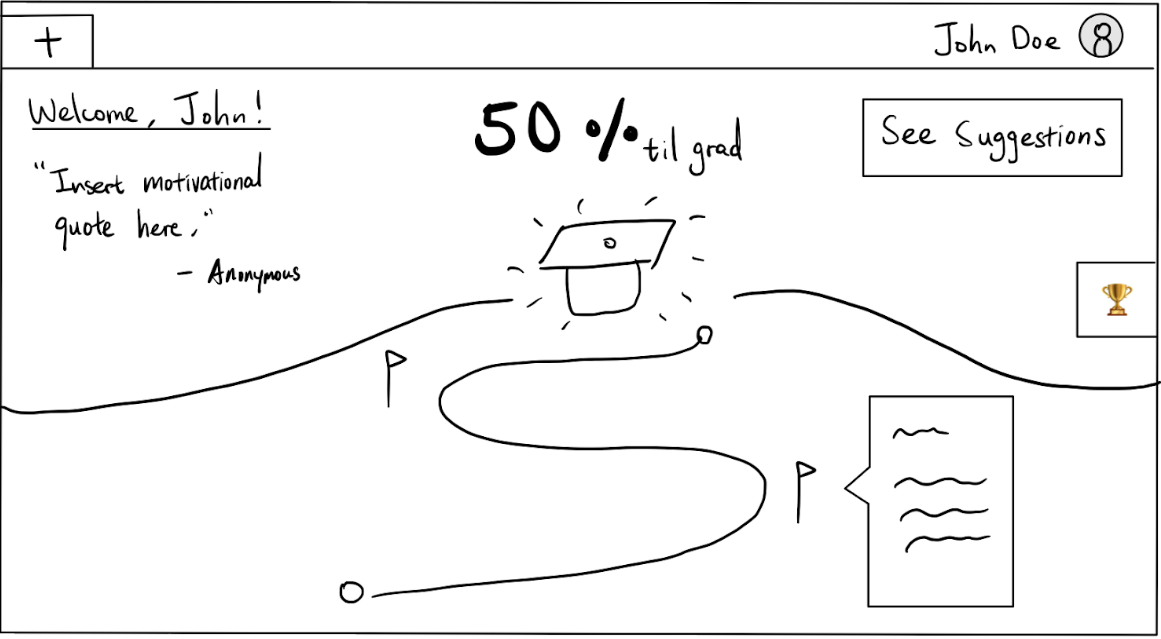 +
John Doe
Welcome, John!
"Insert motivational
quote here,"
- Anonymous
50 % til grad
See Suggestions